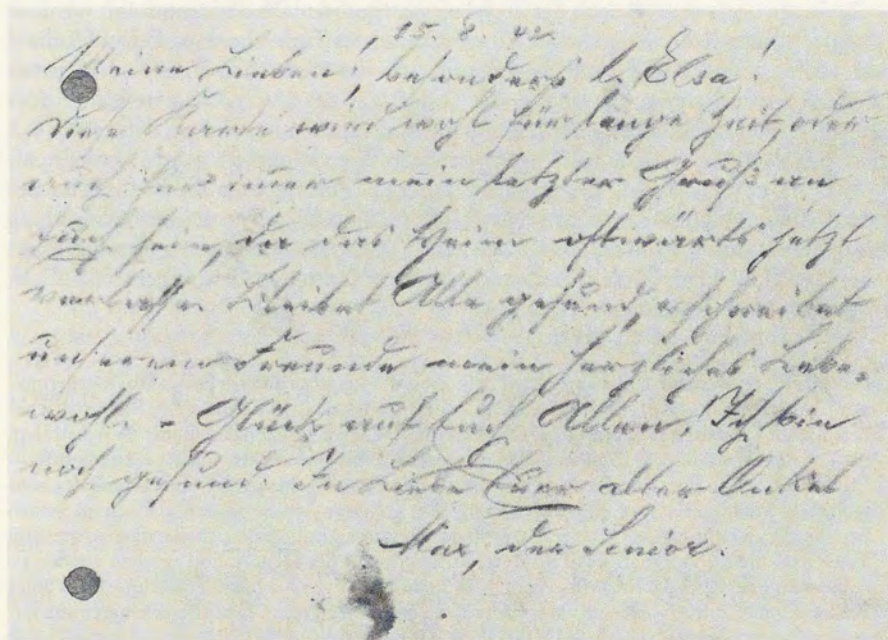 15. 8. 42.
Meine Lieben, besonders l. Elsa!
Diese Karte wird wohl für lange Zeit, oder
auch für imer mein letzter Gruß an
Euch sein, da das Heim ostwärts jetzt
verlasse. Bleibet Alle gesund, schreibet
unserem Freunde mein herzliches Lebe-
wohl. - Glück auf Euch Allen! Ich bin
noch gesund. In Liebe Euer alter Onkel
Max, der Senior.